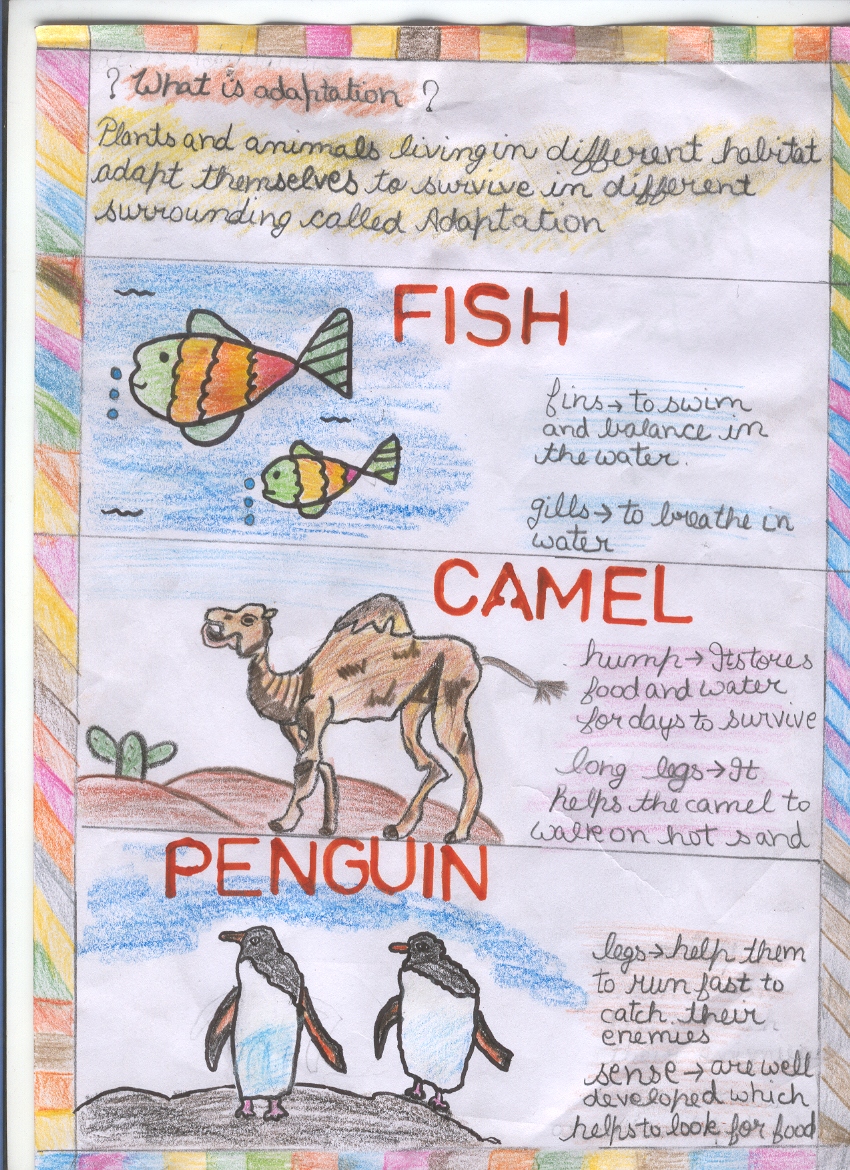 ? What is adaptation ?
Plants and animals living in different habitat
adapt themselves to survive in different
surrounding called Adaptation
FISH
fins → to swim
and balance in
the water.
gills → to breathe in
water
CAMEL
hump → It stores
food and water
for days to survive
long legs → It
helps the camel to
walk on hot sand
PENGUIN
legs → help them
to run fast to
catch their
enemies
sense → are well
developed which
helps to look for food